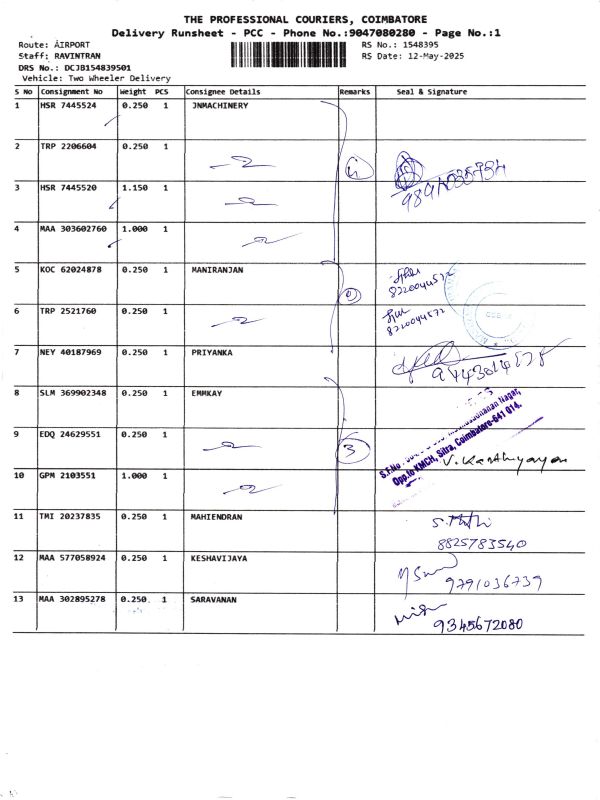 THE PROFESSIONAL COURIERS, COIMBATORE
Delivery Runsheet - PCC - Phone No.:9047080280 - Page No.:1
Route: AIRPORT
RS No.: 1548395
Staff: RAVINTRAN
RS Date: 12-May-2025
DRS No.: DCJB154839501
Vehicle: Two Wheeler Delivery
S No Consignment No Weight PCS Consignee Details Remarks Seal & Signature
1 HSR 7445524 0.250 1 JNMACHINERY
2 TRP 2206604 0.250 1
3 HSR 7445520 1.150 1
4 MAA 303602760 1.000 1
5 KOC 62024878 0.250 1 MANIRANJAN
8220044572
6 TRP 2521760 0.250 1
8220044572
7 NEY 40187969 0.250 1 PRIYANKA
8 SLM 369902348 0.250 1 EMMKAY
9 EDQ 24629551 0.250 1 3
Opp.to KMCH, Sitra, Coimbatore-641 014.
V. Karthiyayan
10 GPM 2103551 1.000 1
11 TMI 20237835 0.250 1 MAHIENDRAN
8825783540
12 MAA 577058924 0.250 1 KESHAVIJAYA
9791036739
13 MAA 302895278 0.250 1 SARAVANAN
9345672080